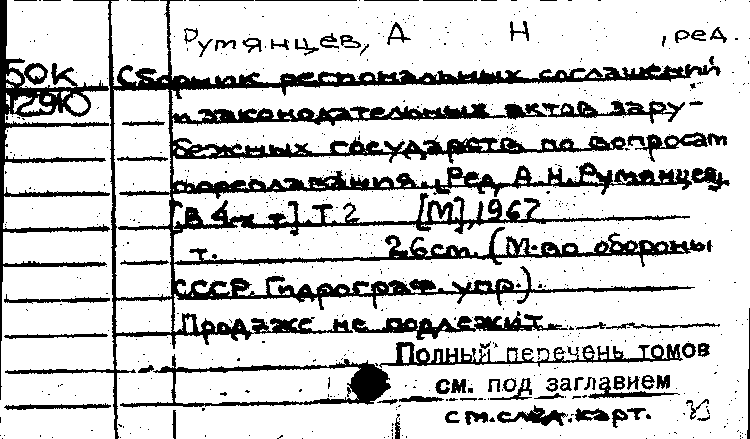 Румянцев, А Н , ред.
50К Сборник региональных соглашений
и законодательных актов зару-
бежных государств по вопросам
мореплавания. Ред. А.Н.Румянцев.
[В 4-х т]. Т.2 [М], 1967
т. 26см. (М-во обороны
СССР. Гидрограф. упр.).
Продаже не подлежит.
Полный перечень томов
см. под заглавием
см. след. карт.